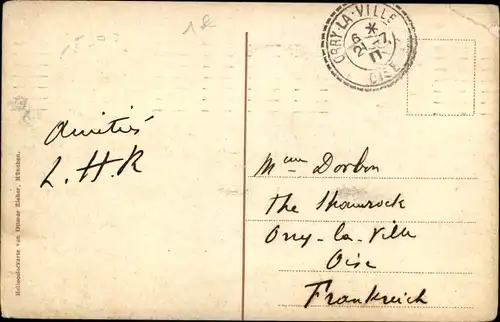 ORRY-LA-VILLE
6 *
21-7
11
OISE
Amitiés
L.H.R
Mme Dorbon
The Shamrock
Orry-la-Ville
Oise
Frankreich
Heliocolorkarte von Ottmar Zieher, München.